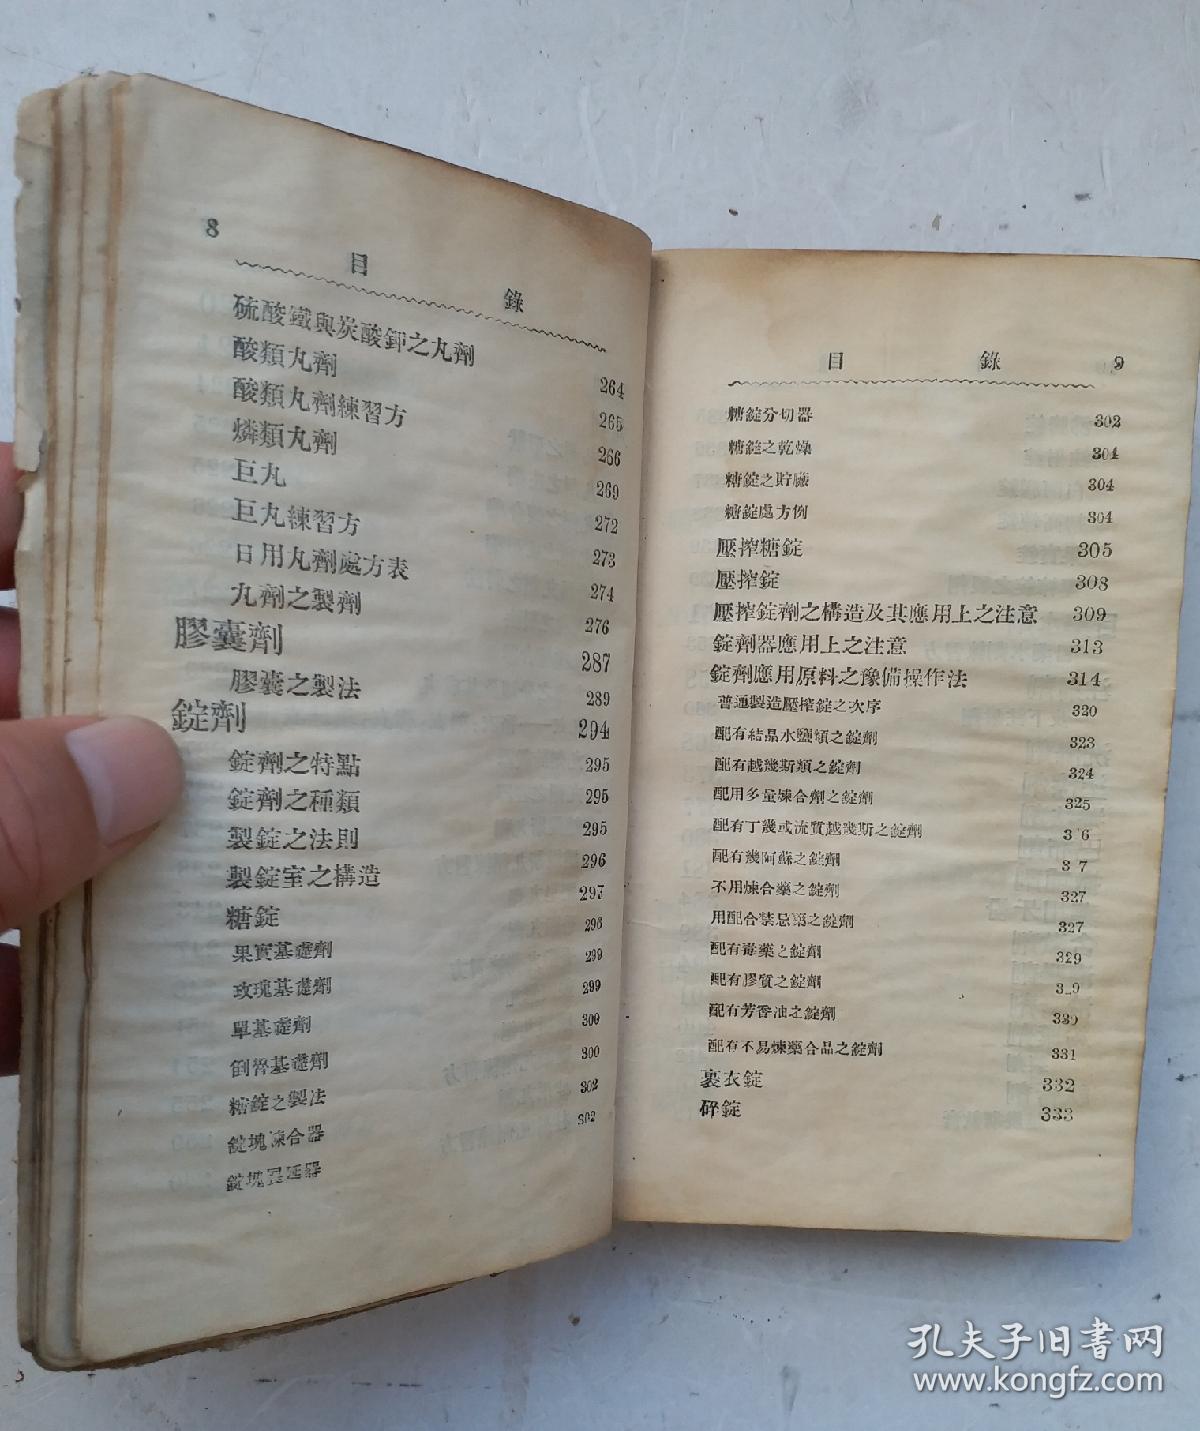 8
目 錄
硫酸鐵與炭酸鉀之丸劑 264
酸類丸劑 265
酸類丸劑練習方 266
燐類丸劑 269
巨丸 272
巨丸練習方 273
日用丸劑處方表 274
丸劑之製劑 276
膠囊劑 287
膠囊之製法 289
錠劑 294
錠劑之特點 295
錠劑之種類 295
製錠之法則 295
製錠室之構造 296
糖錠 297
果實基礎劑 298
玫瑰基礎劑 299
單基礎劑 299
基礎劑 300
糖錠之製法 300
錠塊合器 302
錠塊器 302
目 錄 9
糖錠分切器 302
糖錠之乾燥 304
糖錠之貯廠 304
糖錠處方例 304
壓搾糖錠 305
壓搾錠 308
壓搾錠劑之構造及其應用上之注意 309
錠劑器應用上之注意 313
錠劑應用原料之豫備操作法 314
普通製造壓搾錠之次序 320
配有結晶水鹽類之錠劑 323
配有越幾斯類之錠劑 324
配用多量煉合劑之錠劑 325
配有丁幾或流質越幾斯之錠劑 3 6
配有幾阿蘇之錠劑 3 7
不用煉合藥之錠劑 327
用配合禁忌藥之錠劑 327
配有毒藥之錠劑 329
配有膠質之錠劑 3 9
配有芳香油之錠劑 330
配有不易煉藥合品之錠劑 331
裹衣錠 332
碎錠 333
孔夫子旧书网
www.kongfz.com